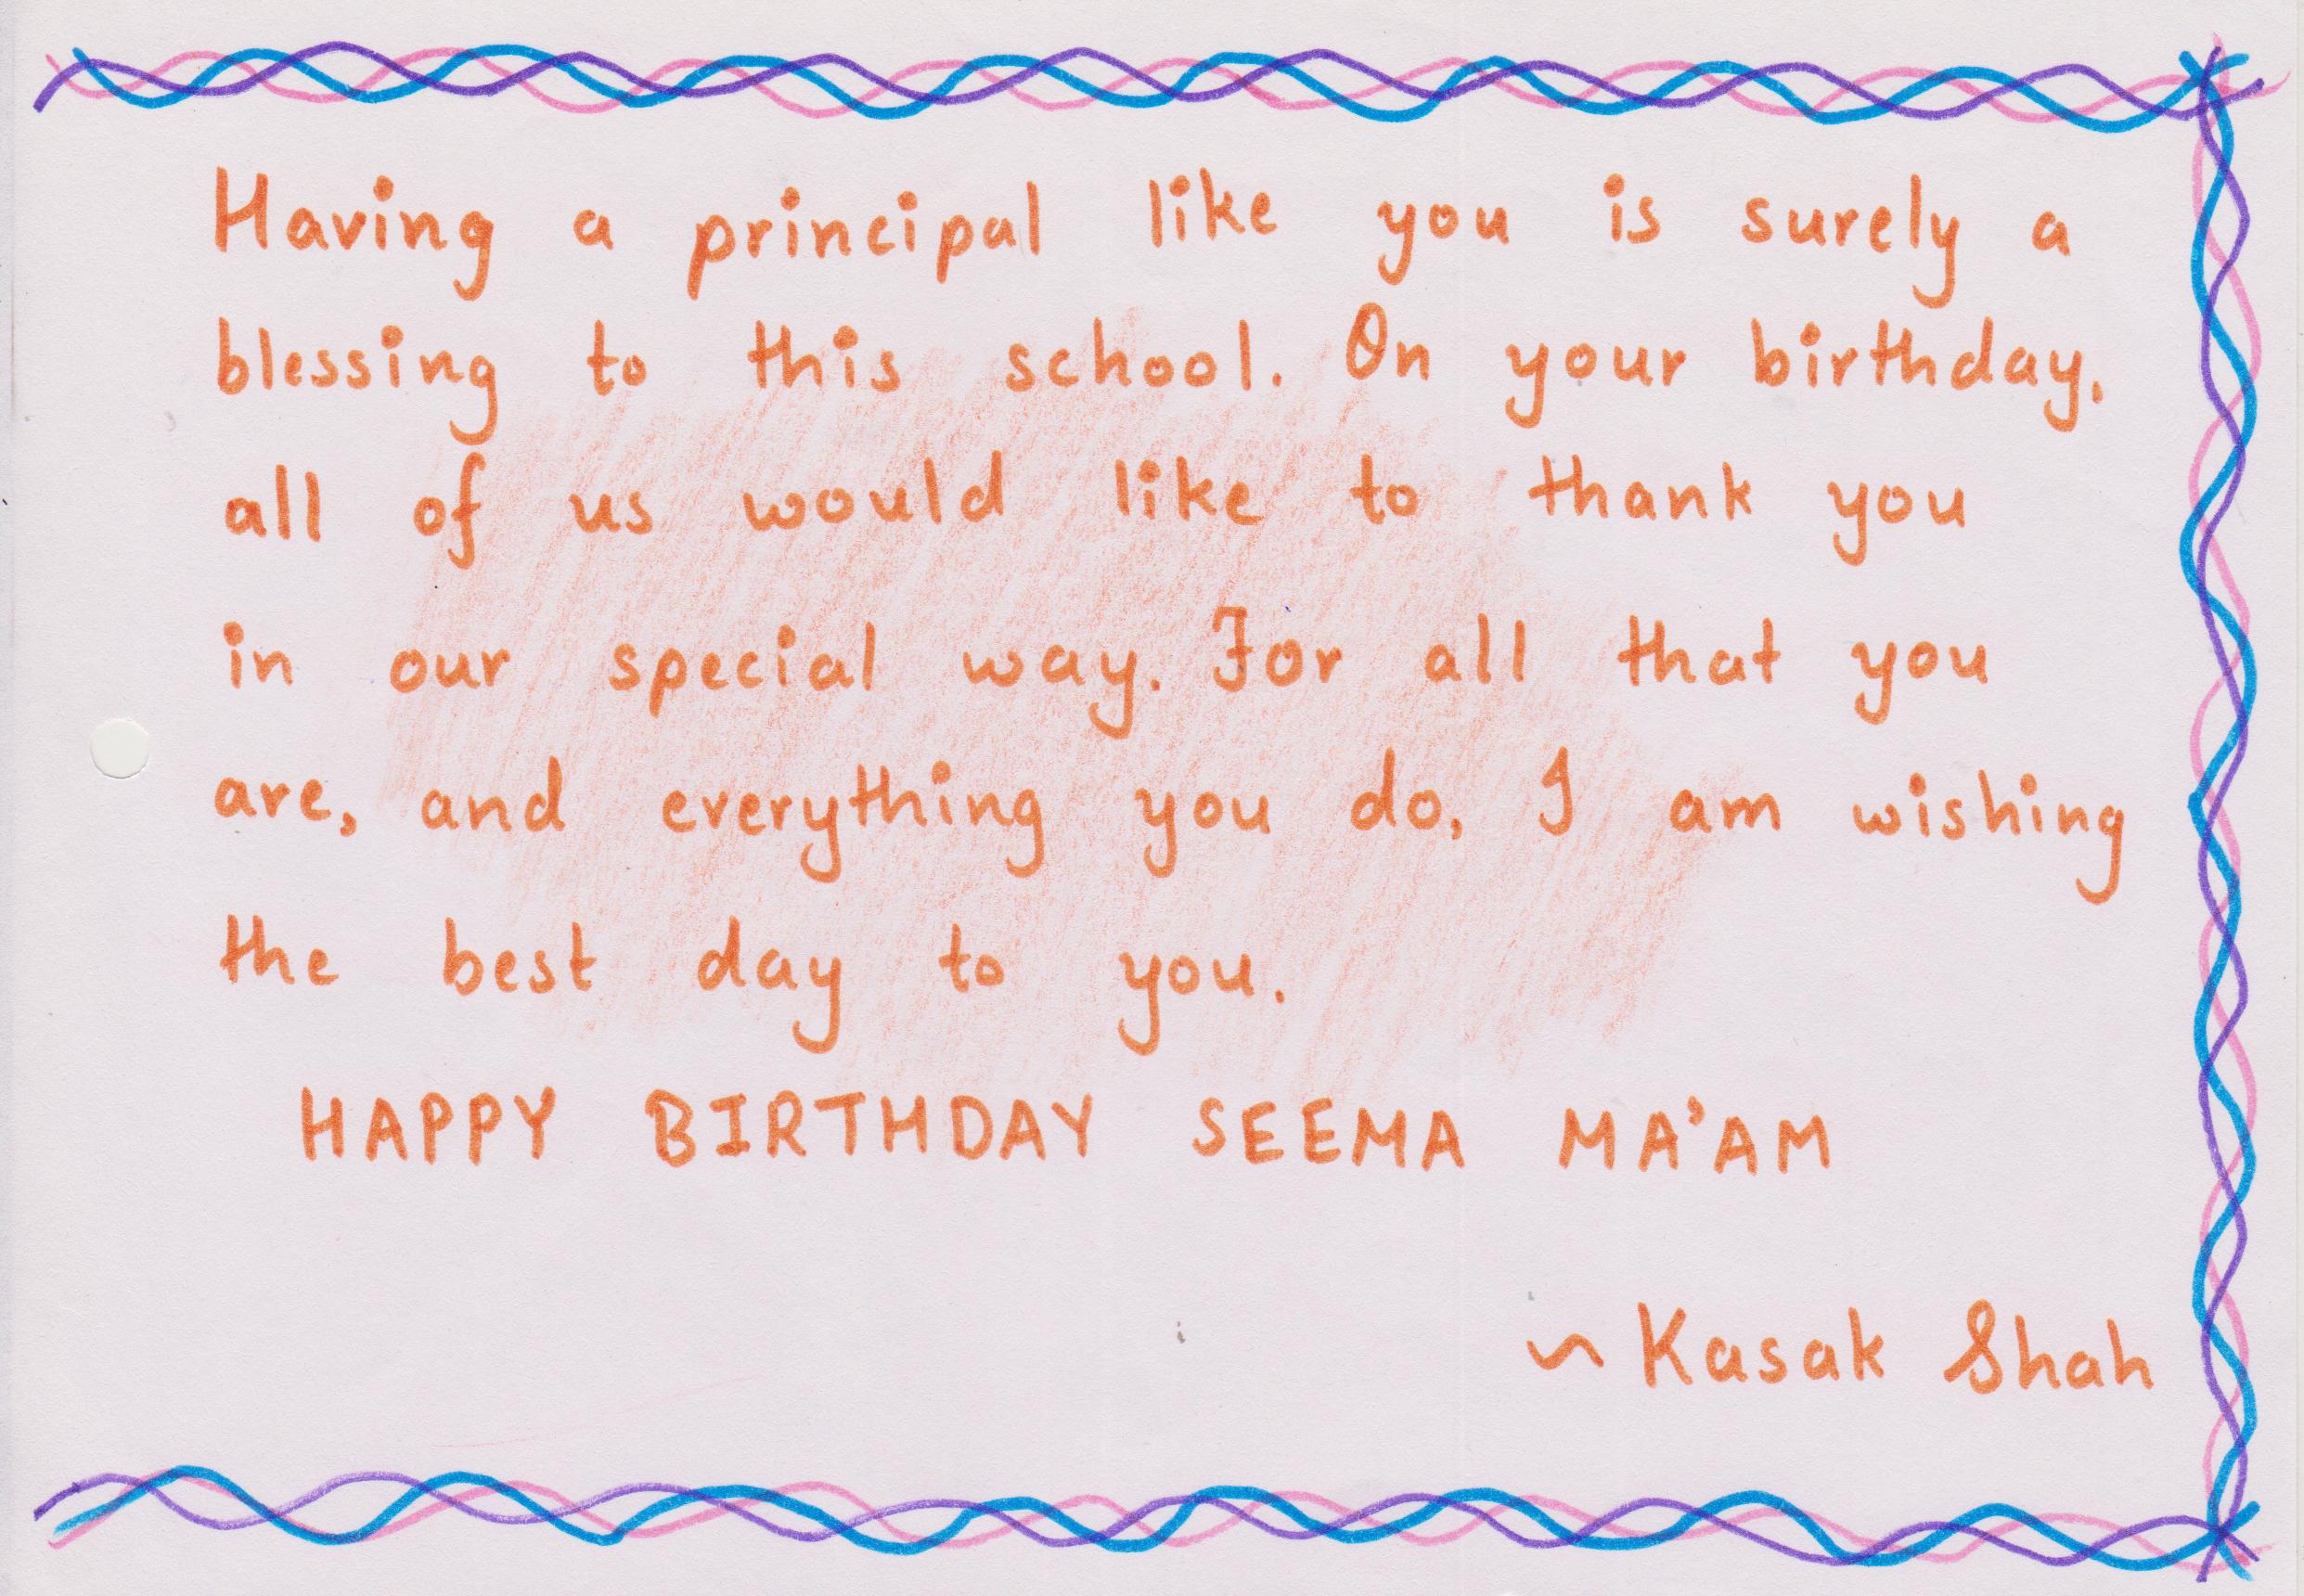 Having a principal like you is surely a
blessing to this school. On your birthday,
all of us would like to thank you
in our special way. For all that you
are, and everything you do, I am wishing
the best day to you.
HAPPY BIRTHDAY SEEMA MA'AM
~ Kasak Shah